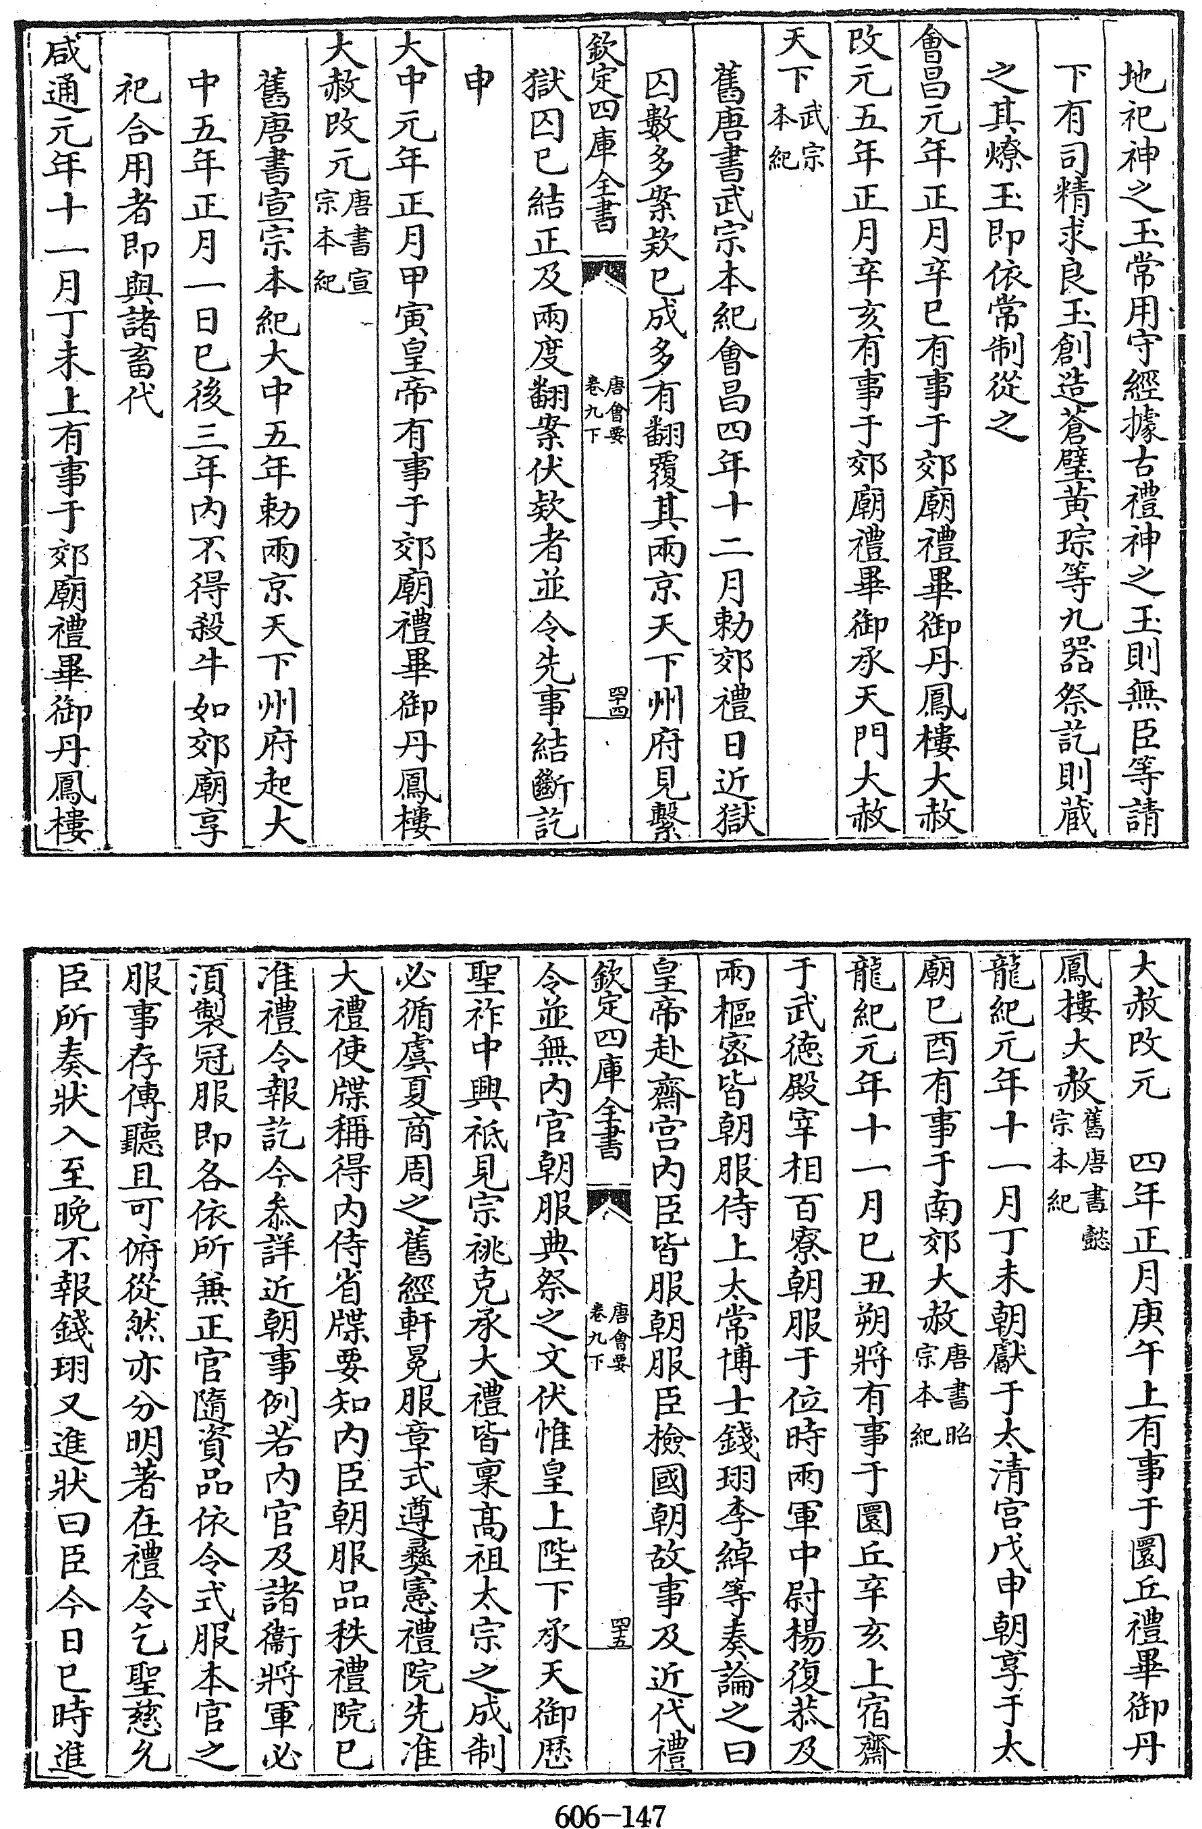 地祀神之玉常用守經據古禮神之玉則無臣等請
下有司精求良玉創造蒼璧黃琮等九器祭訖則藏
之其燎玉即依常制從之
會昌元年正月辛巳有事于郊廟禮畢御丹鳳樓大赦
改元五年正月辛亥有事于郊廟禮畢御承天門大赦
天下武宗本紀
舊唐書武宗本紀會昌四年十二月勅郊禮日近獄
囚數多案款已成多有翻覆其兩京天下州府見繫
欽定四庫全書 唐會要卷九下 四十四
獄囚已結正及兩度翻案伏款者並令先事結斷訖
申
大中元年正月甲寅皇帝有事于郊廟禮畢御丹鳳樓
大赦改元唐書宣宗本紀
舊唐書宣宗本紀大中五年勅兩京天下州府起大
中五年正月一日已後三年內不得殺牛如郊廟享
祀合用者即與諸畜代
咸通元年十一月丁未上有事于郊廟禮畢御丹鳳樓
大赦改元 四年正月庚午上有事于圜丘禮畢御丹
鳳樓大赦舊唐書懿宗本紀
龍紀元年十一月丁未朝獻于太清宮戊申朝享于太
廟己酉有事于南郊大赦唐書昭宗本紀
龍紀元年十一月己丑朔將有事于圜丘辛亥上宿齋
于武德殿宰相百寮朝服于位時兩軍中尉楊復恭及
兩樞密皆朝服侍上太常博士錢珝李綽等奏論之曰
皇帝赴齋宮內臣皆服朝服臣檢國朝故事及近代禮
欽定四庫全書 唐會要卷九下 四十五
令並無內官朝服典祭之文伏惟皇上陛下承天御厯
聖祚中興祗見宗祧克承大禮皆稟高祖太宗之成制
必循虞夏商周之舊經軒冕服章式遵彝憲禮院先准
大禮使牒稱得內侍省牒要知內臣朝服品秩禮院已
准禮令報訖今叅詳近朝事例若內官及諸衛將軍必
須製冠服即各依所兼正官隨資品依令式服本官之
服事存傳聽且可俯從然亦分明著在禮令乞聖慈允
臣所奏狀入至晚不報錢珝又進狀曰臣今日巳時進
606-147